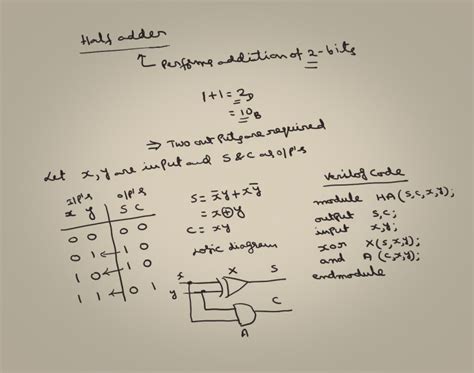 Half adder
Performs addition of 2-bits
1+1 = 2D
= 10B
⇒ Two outputs are required
Let x, y are input and S & C as o/p's
i/p's o/p's
x y S C
0 0 0 0
0 1 ← 1 0
1 0 ← 1 0
1 1 ← 0 1
S = x̄y + xȳ
= x⊕y
C = xy
Logic diagram
x
y
X
S
C
A
Verilog Code
module HA(S,C,x,y);
output S,C;
input x,y;
xor X(S,x,y);
and A(C,x,y);
endmodule